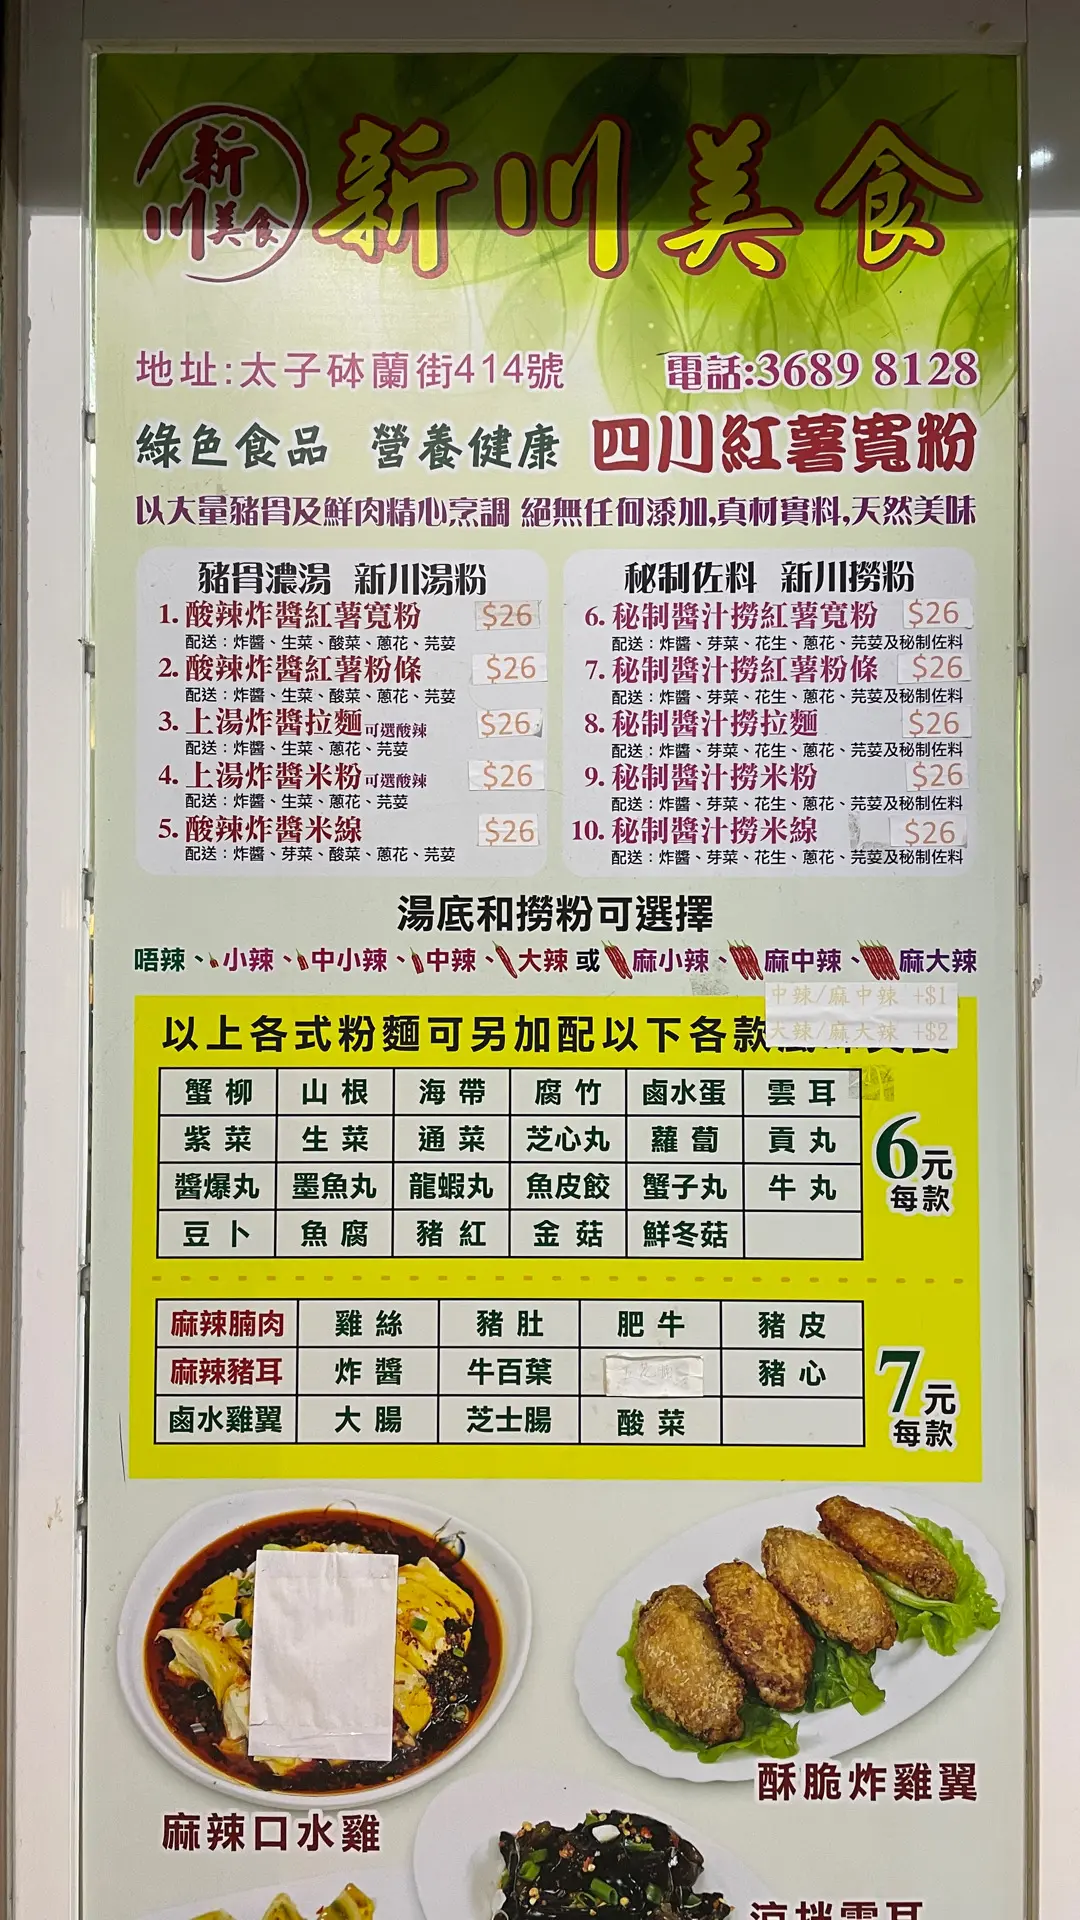 新川美食
新川美食
地址:太子砵蘭街414號 電話:3689 8128
綠色食品 營養健康 四川紅薯寬粉
以大量豬骨及鮮肉精心烹調 絕無任何添加,真材實料,天然美味
豬骨濃湯 新川湯粉
1. 酸辣炸醬紅薯寬粉 $26
配送：炸醬、生菜、酸菜、蔥花、芫荽
2. 酸辣炸醬紅薯粉條 $26
配送：炸醬、生菜、酸菜、蔥花、芫荽
3. 上湯炸醬拉麵 可選酸辣 $26
配送：炸醬、生菜、蔥花、芫荽
4. 上湯炸醬米粉 可選酸辣 $26
配送：炸醬、生菜、蔥花、芫荽
5. 酸辣炸醬米線 $26
配送：炸醬、芽菜、酸菜、蔥花、芫荽
秘制佐料 新川撈粉
6. 秘制醬汁撈紅薯寬粉 $26
配送：炸醬、芽菜、花生、蔥花、芫荽及秘制佐料
7. 秘制醬汁撈紅薯粉條 $26
配送：炸醬、芽菜、花生、蔥花、芫荽及秘制佐料
8. 秘制醬汁撈拉麵 $26
配送：炸醬、芽菜、花生、蔥花、芫荽及秘制佐料
9. 秘制醬汁撈米粉 $26
配送：炸醬、芽菜、花生、蔥花、芫荽及秘制佐料
10. 秘制醬汁撈米線 $26
配送：炸醬、芽菜、花生、蔥花、芫荽及秘制佐料
湯底和撈粉可選擇
唔辣、小辣、中小辣、中辣、大辣 或 麻小辣、麻中辣、麻大辣
中辣/麻中辣 +$1
大辣/麻大辣 +$2
以上各式粉麵可另加配以下各款
蟹柳 山根 海帶 腐竹 鹵水蛋 雲耳
紫菜 生菜 通菜 芝心丸 蘿蔔 貢丸
醬爆丸 墨魚丸 龍蝦丸 魚皮餃 蟹子丸 牛丸
豆卜 魚腐 豬紅 金菇 鮮冬菇
6元
每款
麻辣腩肉 雞絲 豬肚 肥牛 豬皮
麻辣豬耳 炸醬 牛百葉 豬心
鹵水雞翼 大腸 芝士腸 酸菜
7元
每款
酥脆炸雞翼
麻辣口水雞
涼拌雲耳